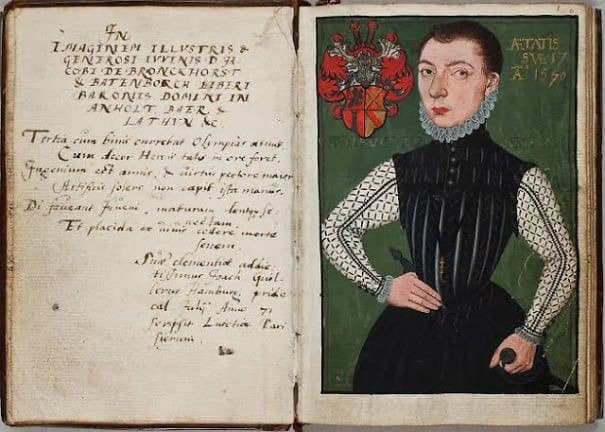 IN
IMAGINEM ILLUSTRIS &
GENEROSI IVVENIS D IA
COBI DE BRONCKHORST
& BATENBORCH LIBERI
BARONIS DOMINI IN
ANHOLT BAER &
LATHVM &c
Tertia cum binis currebat Olympias annis,
Cum decor Herois talis in ore foret.
Ingenium est annis, & virtus pectore maior
Artificis solers non capit ista manus.
Di faveant Iuveni, maturam dent
nectam
Et placida cedere morte
senem.
Suae clementiae addic
tissimus Joach
Hamburg pridie
cal Julij Anno 71
scripsit Lutetiae Pari
siorum.
ÆTATIS
SVÆ 17
Aº 1570